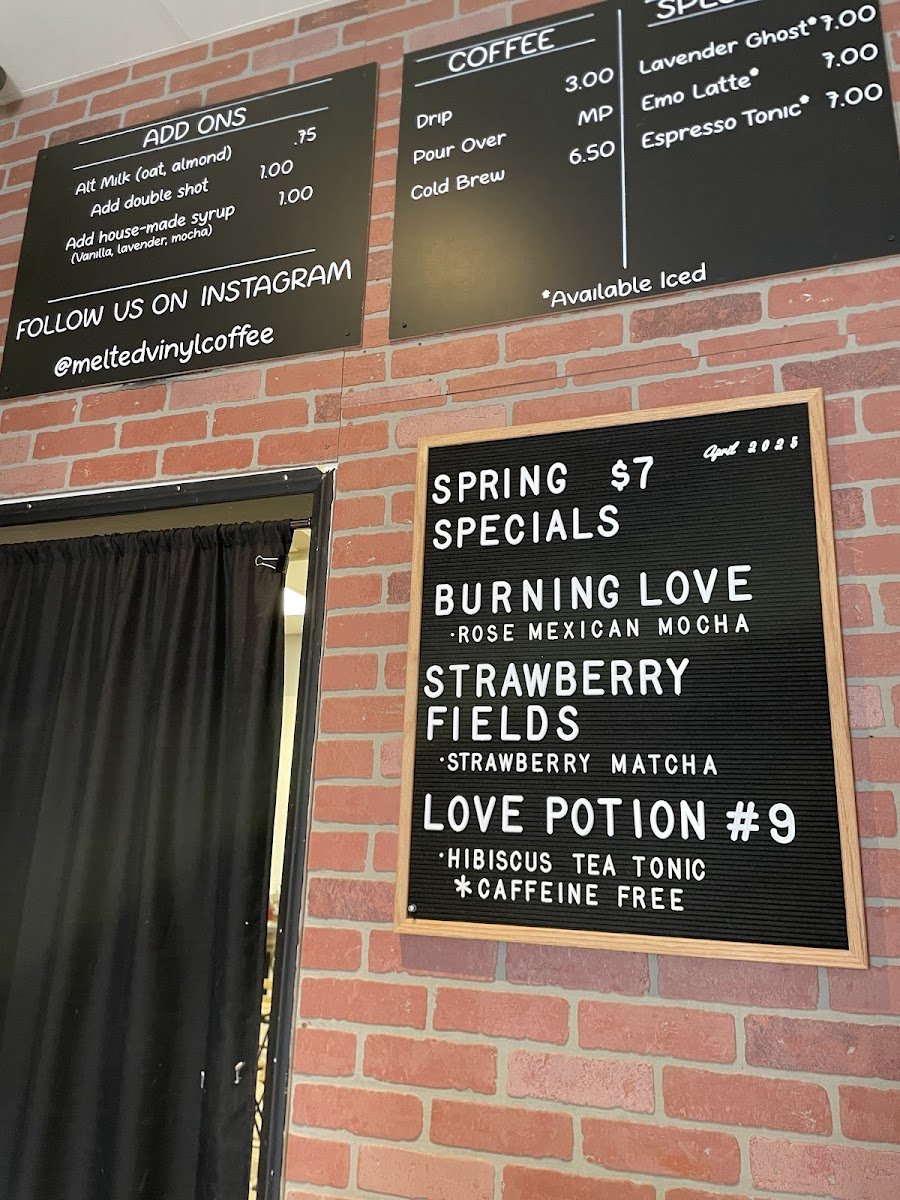 ADD ONS
Alt Milk (oat, almond) .75
Add double shot 1.00
Add house-made syrup 1.00
(Vanilla, lavender, mocha)
FOLLOW US ON INSTAGRAM
@meltedvinylcoffee
COFFEE
Drip 3.00
Pour Over MP
Cold Brew 6.50
Lavender Ghost* 7.00
Emo Latte* 7.00
Espresso Tonic* 7.00
*Available Iced
April 2025
SPRING $7
SPECIALS
BURNING LOVE
·ROSE MEXICAN MOCHA
STRAWBERRY
FIELDS
·STRAWBERRY MATCHA
LOVE POTION #9
·HIBISCUS TEA TONIC
*CAFFEINE FREE